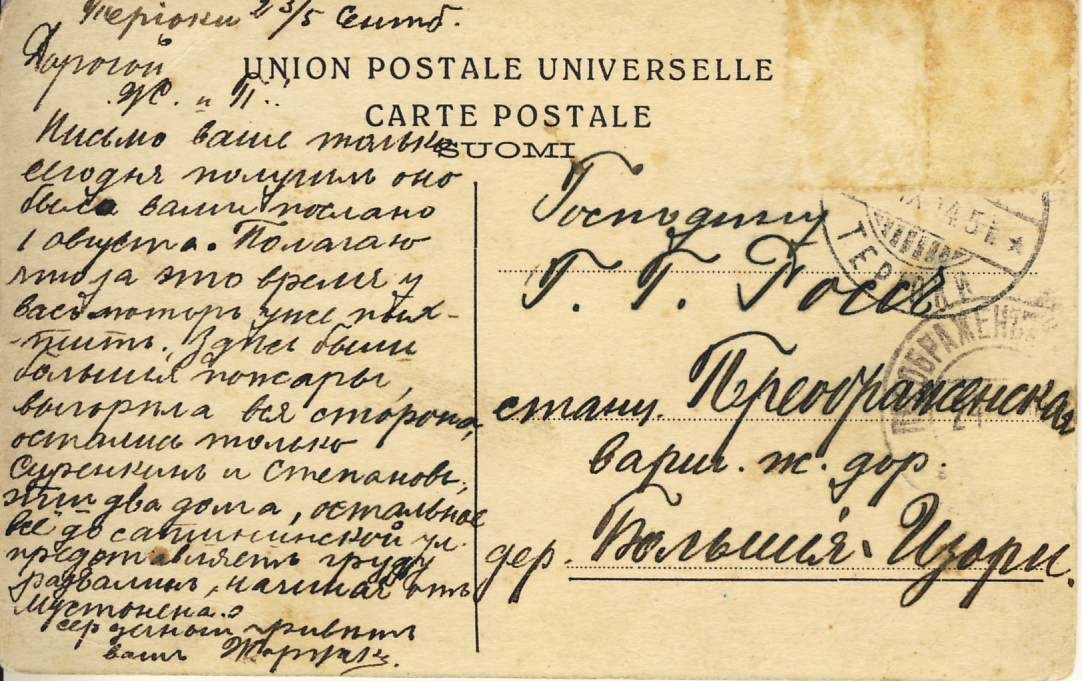 Терiоки 2 3/5 Сентб.
Дорогой
Ж. и П.!
UNION POSTALE UNIVERSELLE
CARTE POSTALE
SUOMI
Письмо ваше только
сегодня получилъ оно
было вами послано
1 августа. Полагаю
что за это время у
васъ моторъ уже
Здѣсь были
большiя пожары,
выгорѣла вся сторона,
остались только
Суренкинъ и Степановъ,
эти два дома, остальное
всё до ул.
предоставляетъ груду
развалинъ, начиная отъ
Мустонена.
сердечный привѣтъ
вашъ
Господину
Г. Г. Россъ
станц. Преображенская
варш. ж. дор.
дер. Большiя Изори.
ТЕРIОКИ